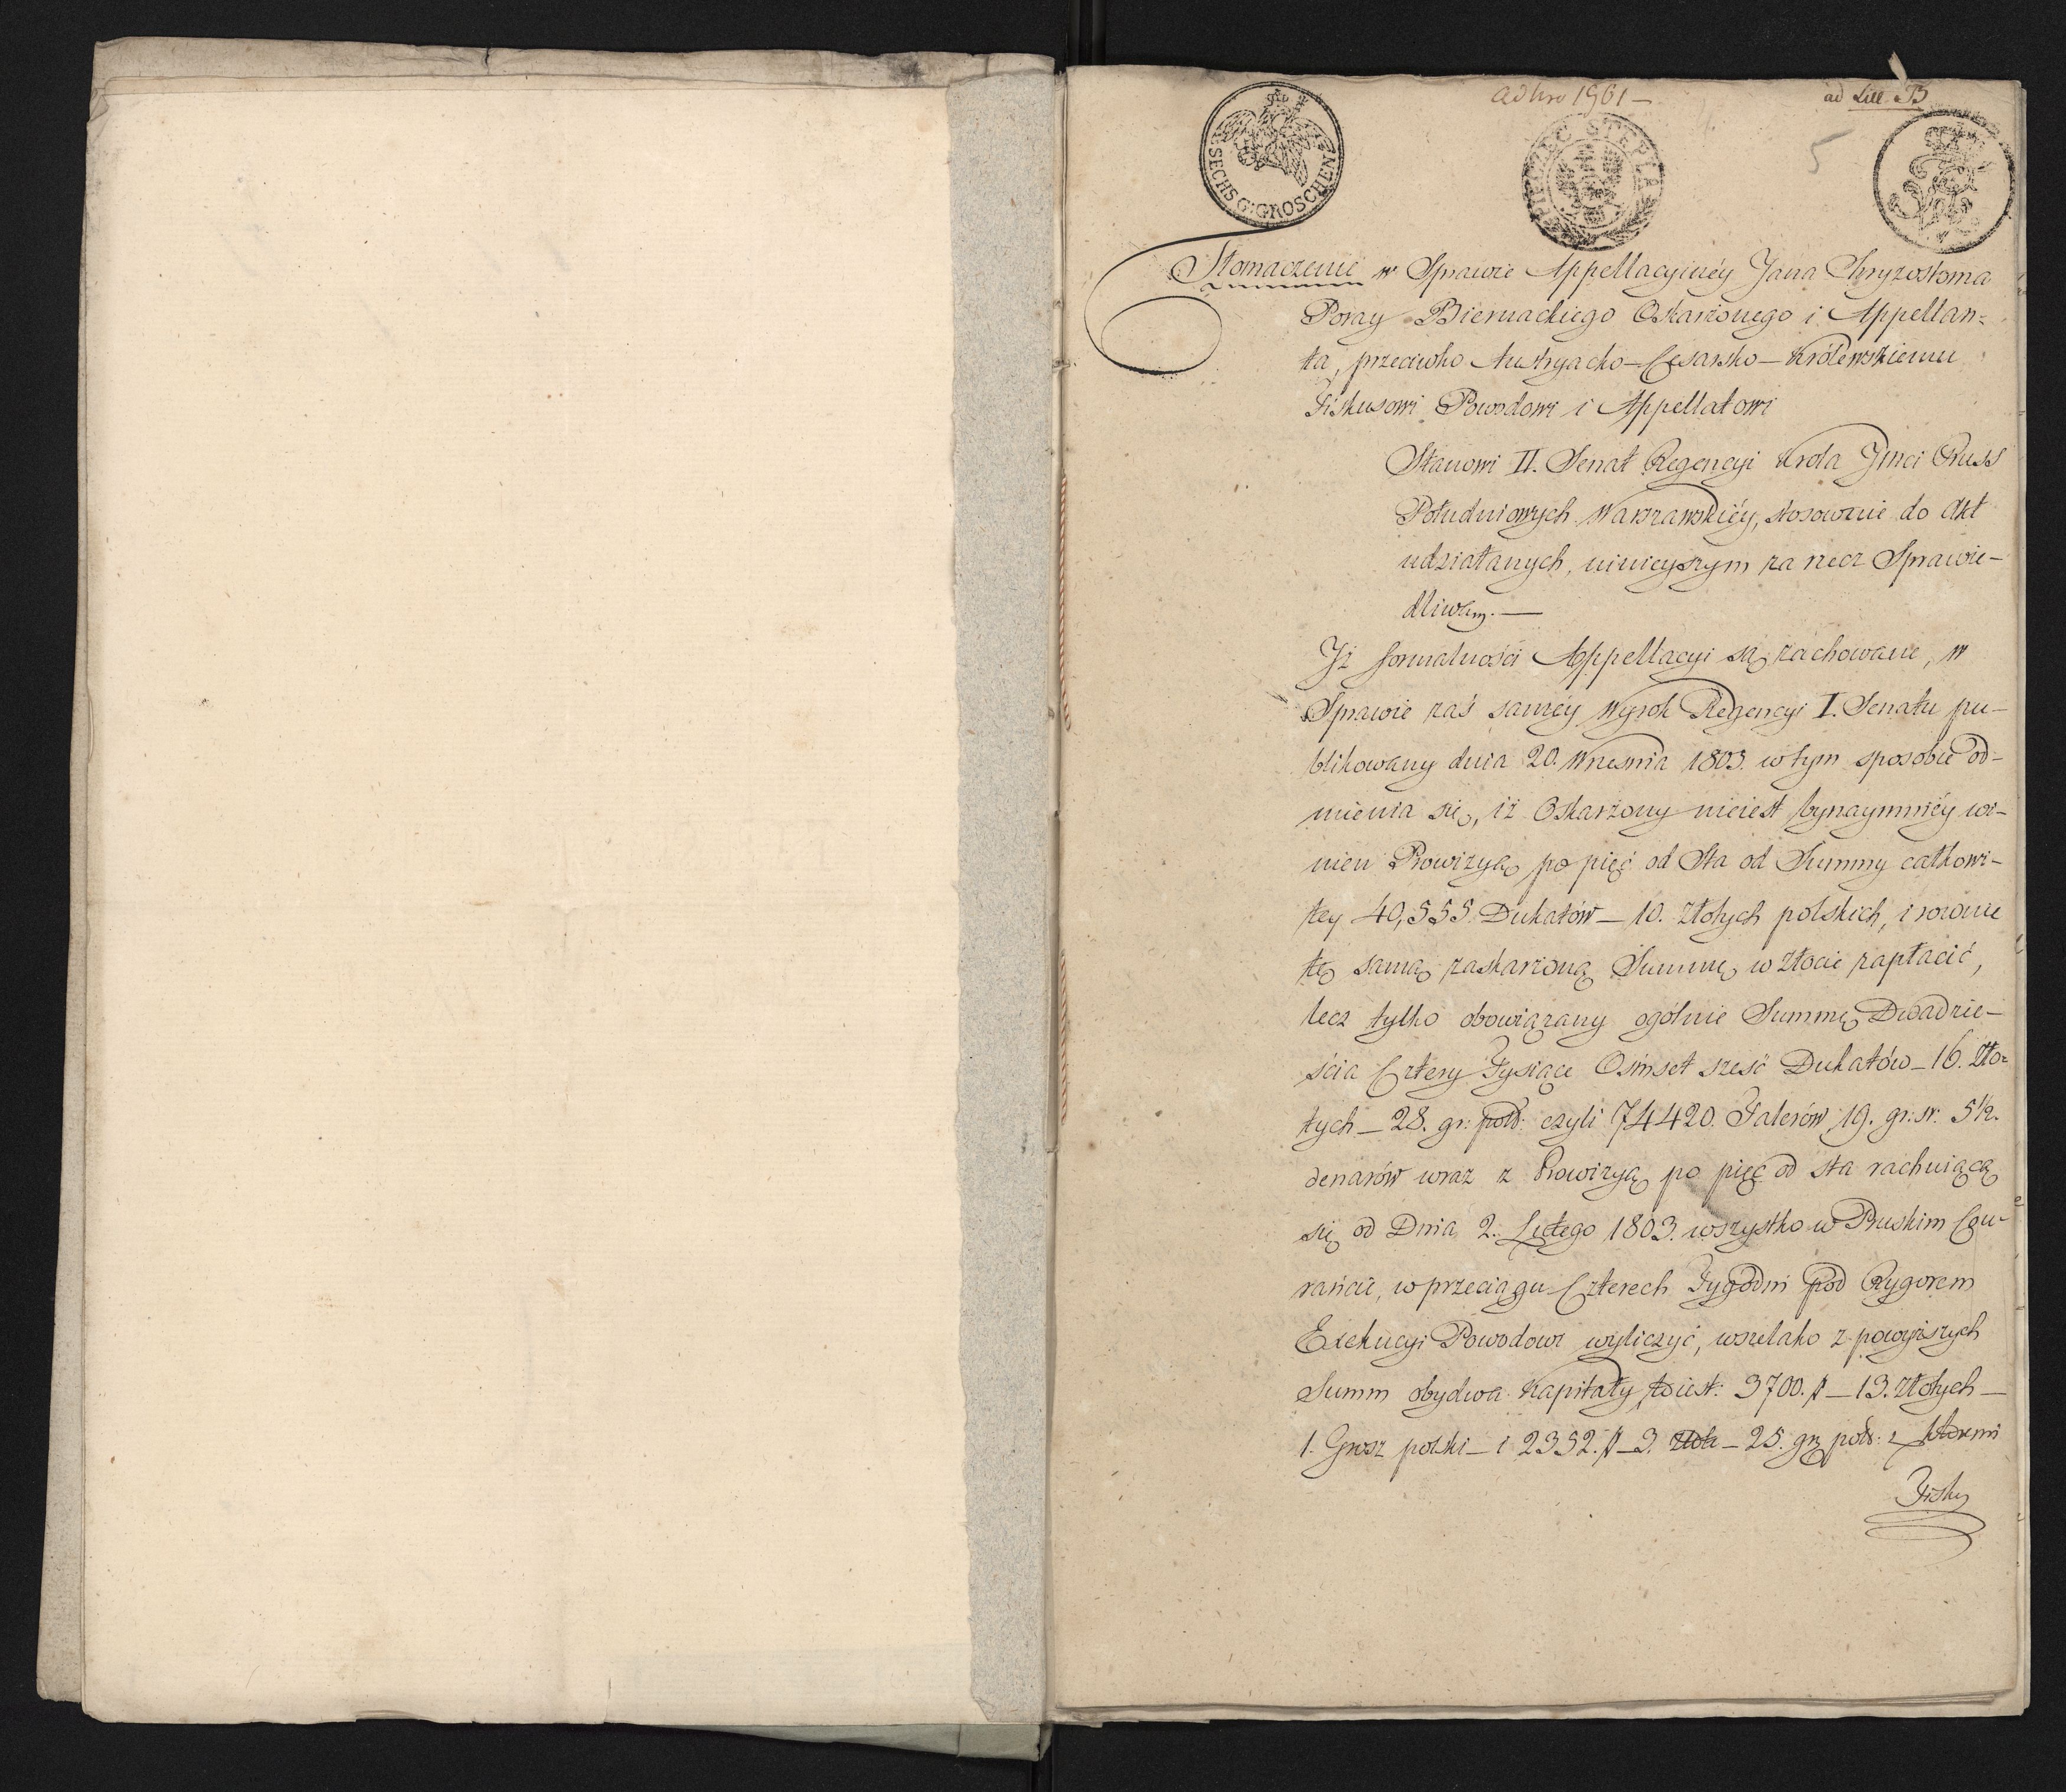 ad Nro 1961 –
ad Litt. B
5
SECHS G:GROSCHEN
PIECZĘC STĘPLA
Tłomaczenie w Sprawie Appellacyinéy Jana Chryzostoma
Poray Biernackiego Oskarżonego i Appellan=
ta, przeciwko Austryacko–Cesarsko–Królewskiemu
Fiskusowi Powodowi i Appellatowi
Stanowi II. Senat Regencyi Krola Jmci Pruss
Południowych Warszawskiéy, stosownie do Akt
udziałanych, ninieyszym za rzecz Sprawie–
dliwą. —
Iż formalności Appellacyi są zachowane, w
Sprawie zaś saméy Wyrok Regencyi I. Senatu pu–
blikowany dnia 20. Wrzesnia 1803. w tym sposobie od–
mienia się, iż Oskarżony nieiest bynaymniéy wi–
nien Prowizyą po pięć od Sta od Summy całkowi–
tey 40,555 Dukatów – 10. Złotych polskich, i rownie
tę samą zaskarżoną Summę w złocie zapłacić,
lecz tylko obowiązany ogólnie Summę Dwadzie–
ścia Cztery Tysiące Osmset sześć Dukatów – 16. Zło=
tych – 28. gr: pols: czyli 74420. Talerów 19. gr: sr: 5½.
denarów wraz z Prowizyą po pięć od sta rachuiącą
się od Dnia 2. Lutego 1803. wszystko w Pruskim Cou–
rancie, w przeciągu Czterech Tygodni pod Rygorem
Exekucyi Powodowi wyliczyć, wszelako z powyższych
Summ obydwa Kapitały toiest: 3700. # – 13. Złotych –
1. Grosz polski – i 2352. # – 3. Złote – 25. gr. pols: z któremi
Fiskus